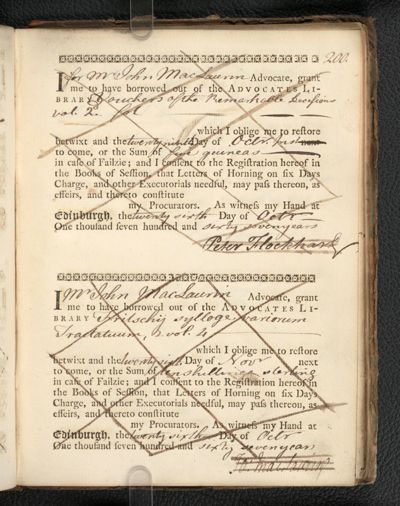 200.
I for Mr John MacLaurin Advocate, grant
me to have borrowed out of the ADVOCATES LI-
BRARY Vouchers of the Remarkable Decisions
vol. 2. fol
which I oblige me to reſtore
betwixt and the twenty ninth Day of Octr inst next
to come, or the Sum of five guineas
in caſe of Failzie; and I conſent to the Regiſtration hereof in
the Books of Seſſion, that Letters of Horning on ſix Days
Charge, and other Executorials needful, may paſs thereon, as
effeirs, and thereto conſtitute
my Procurators. As witneſs my Hand at
Edinburgh, the twenty sixth Day of Octr
One thouſand ſeven hundred and sixty seven years
Peter Flockhart
I Mr John MacLaurin Advocate, grant
me to have borrowed out of the ADVOCATES LI-
BRARY Fritschij sylloge variorum
Tractatuum, 2 vol. 4
which I oblige me to reſtore
betwixt and the twenty sixth Day of Novr next
to come, or the Sum of ten shillings sterling
in caſe of Failzie; and I conſent to the Regiſtration hereof in
the Books of Seſſion, that Letters of Horning on ſix Days
Charge, and other Executorials needful, may paſs thereon, as
effeirs, and thereto conſtitute
my Procurators. As witneſs my Hand at
Edinburgh, the twenty sixth Day of Octr
One thouſand ſeven hundred and sixty seven years